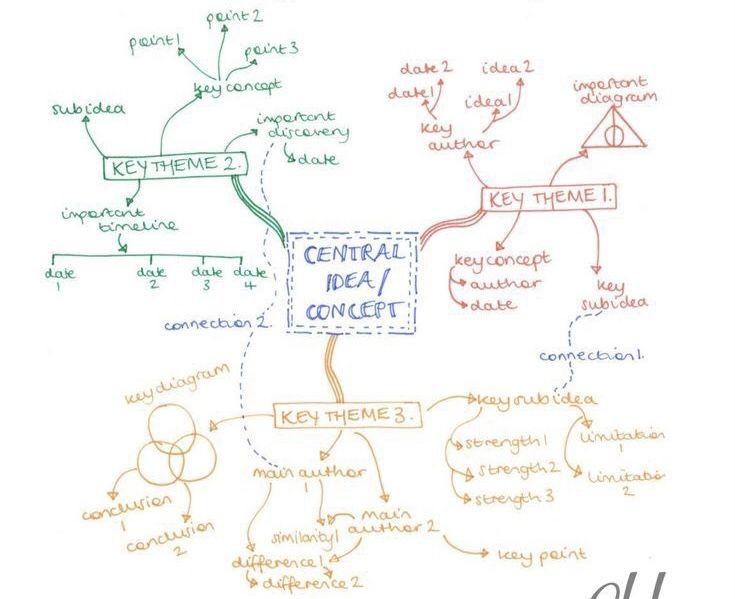 point 2
point 1
point 3
key concept
sub idea
important
discovery
date
KEY THEME 2.
important
timeline
date
1
date
2
date
3
date
4
date 2
idea 2
date 1
idea 1
key
author
important
diagram
KEY THEME 1.
key concept
author
date
key
subidea
CENTRAL
IDEA/
CONCEPT
connection 2.
connection 1.
key diagram
KEY THEME 3.
key sub idea
strength 1
strength 2
strength 3
limitation
1
limitation
2
main author
1
conclusion
1
conclusion
2
similarity 1
main
author 2
difference 1
difference 2
key point